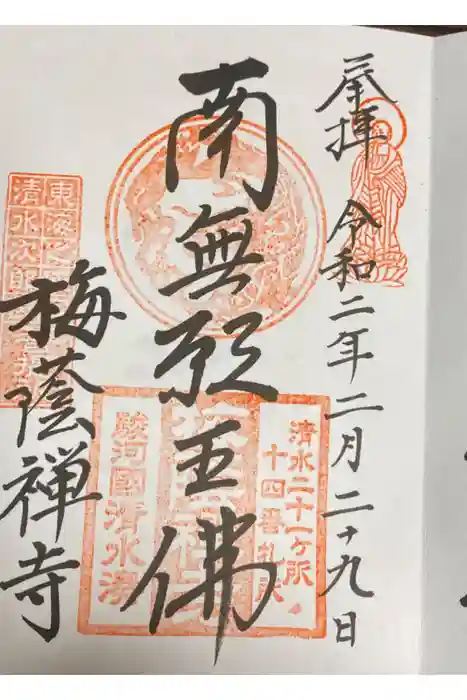 奉拝 令和二年二月二十九日
南無願王佛
梅蔭禅寺
清水二十一ヶ所
十四番札所
駿河國清水湊
東海
清水次郎